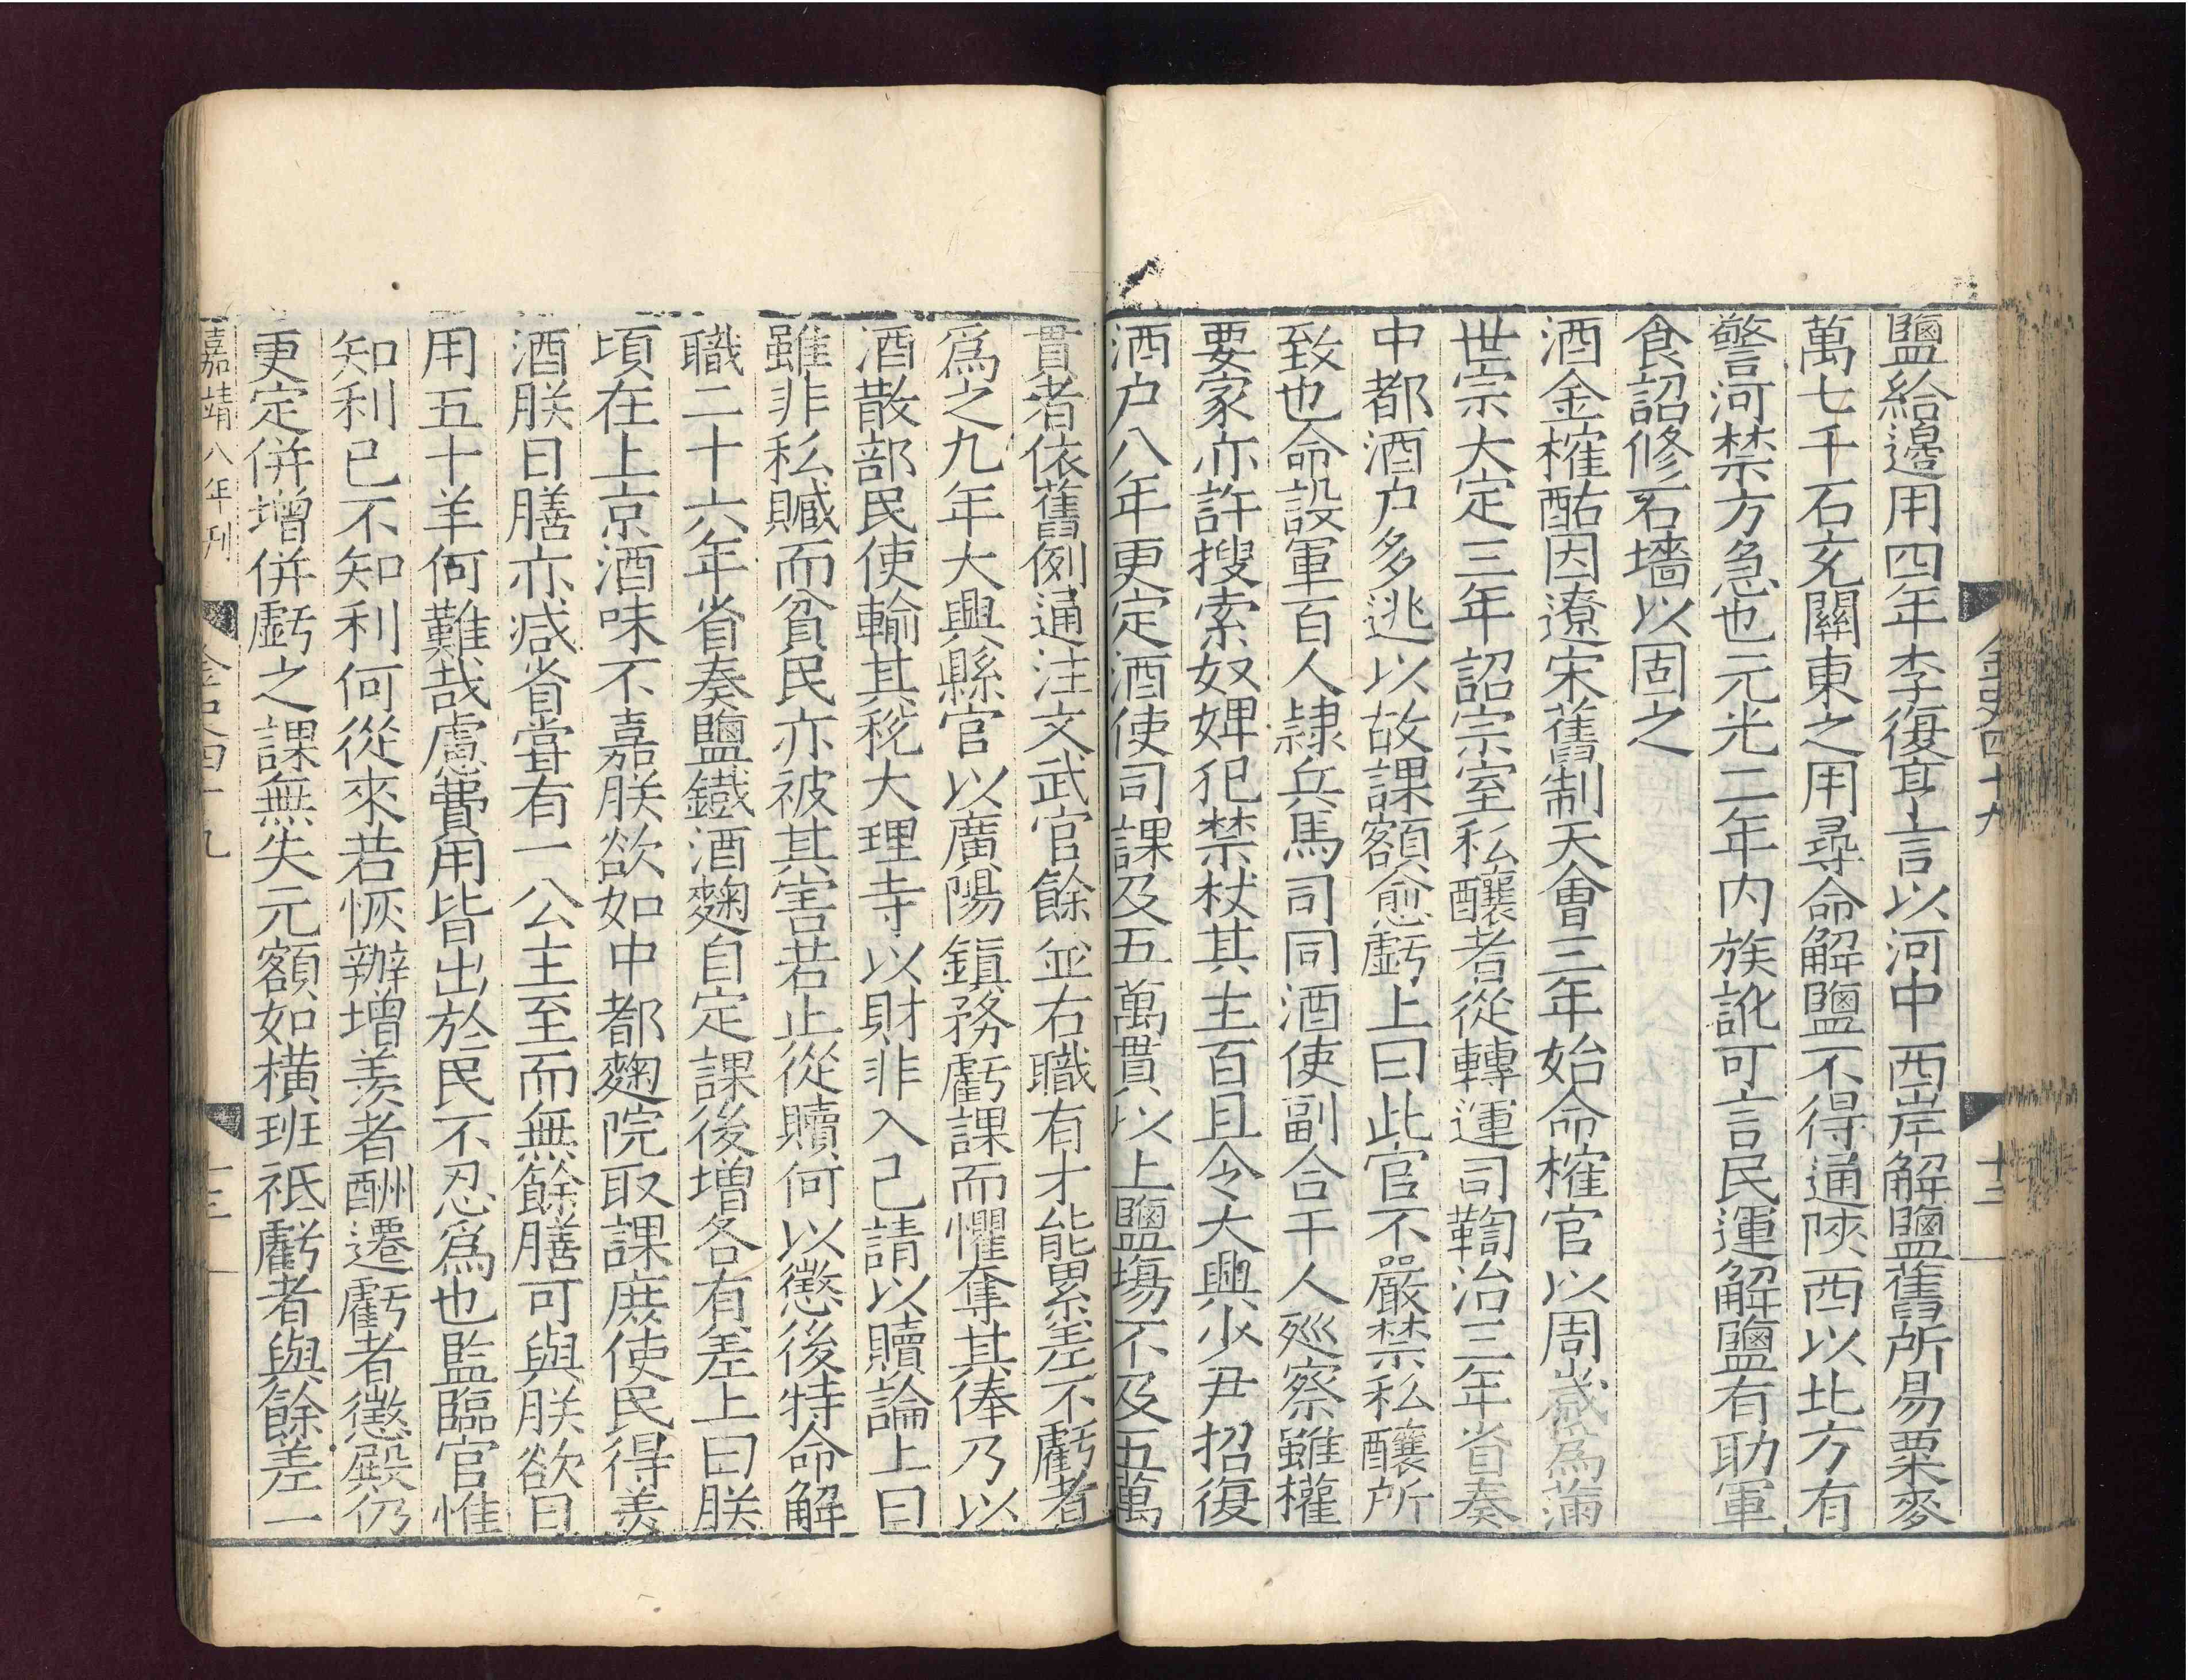 金史四十九
十二
鹽給邊用四年李復亨言以河中西岸解鹽舊所易粟麥
萬七千石充關東之用尋命解鹽不得通陝西以北方有
警河禁方急也元光二年內族訛可言民運解鹽有助軍
食詔修石墻以固之
酒金榷酤因遼宋舊制天會三年始命榷官以周歲爲滿
世宗大定三年詔宗室私釀者從轉運司鞫治三年省奏
中都酒户多逃以故課額愈虧上曰此官不嚴禁私釀所
致也命設軍百人隷兵馬司同酒使副合千人廵察雖權
要家亦許搜索奴婢犯禁杖其主百且令大興少尹招復
酒户八年更定酒使司課及五萬貫以上鹽塲不及五萬
貫者依舊例通注文武官餘並右職有才能累差不虧者
爲之九年大興縣官以廣陽鎮務虧課而懼奪其俸乃以
酒散部民使輸其稅大理寺以財非入己請以贖論上曰
雖非私贓而貧民亦被其害若止從贖何以懲後特命解
職二十六年省奏鹽鐵酒麴自定課後增各有差上曰朕
頃在上京酒味不嘉朕欲如中都麴院取課庶使民得羙
酒朕日膳亦減省嘗有一公主至而無餘膳可與朕欲日
用五十羊何難哉慮費用皆出於民不忍爲也監臨官惟
知利己不知利何從來若恢辦增羨者酬遷虧者懲殿仍
更定併增併虧之課無失元額如橫班祗虧者與餘差一
嘉靖八年刊
金史四十九
十三